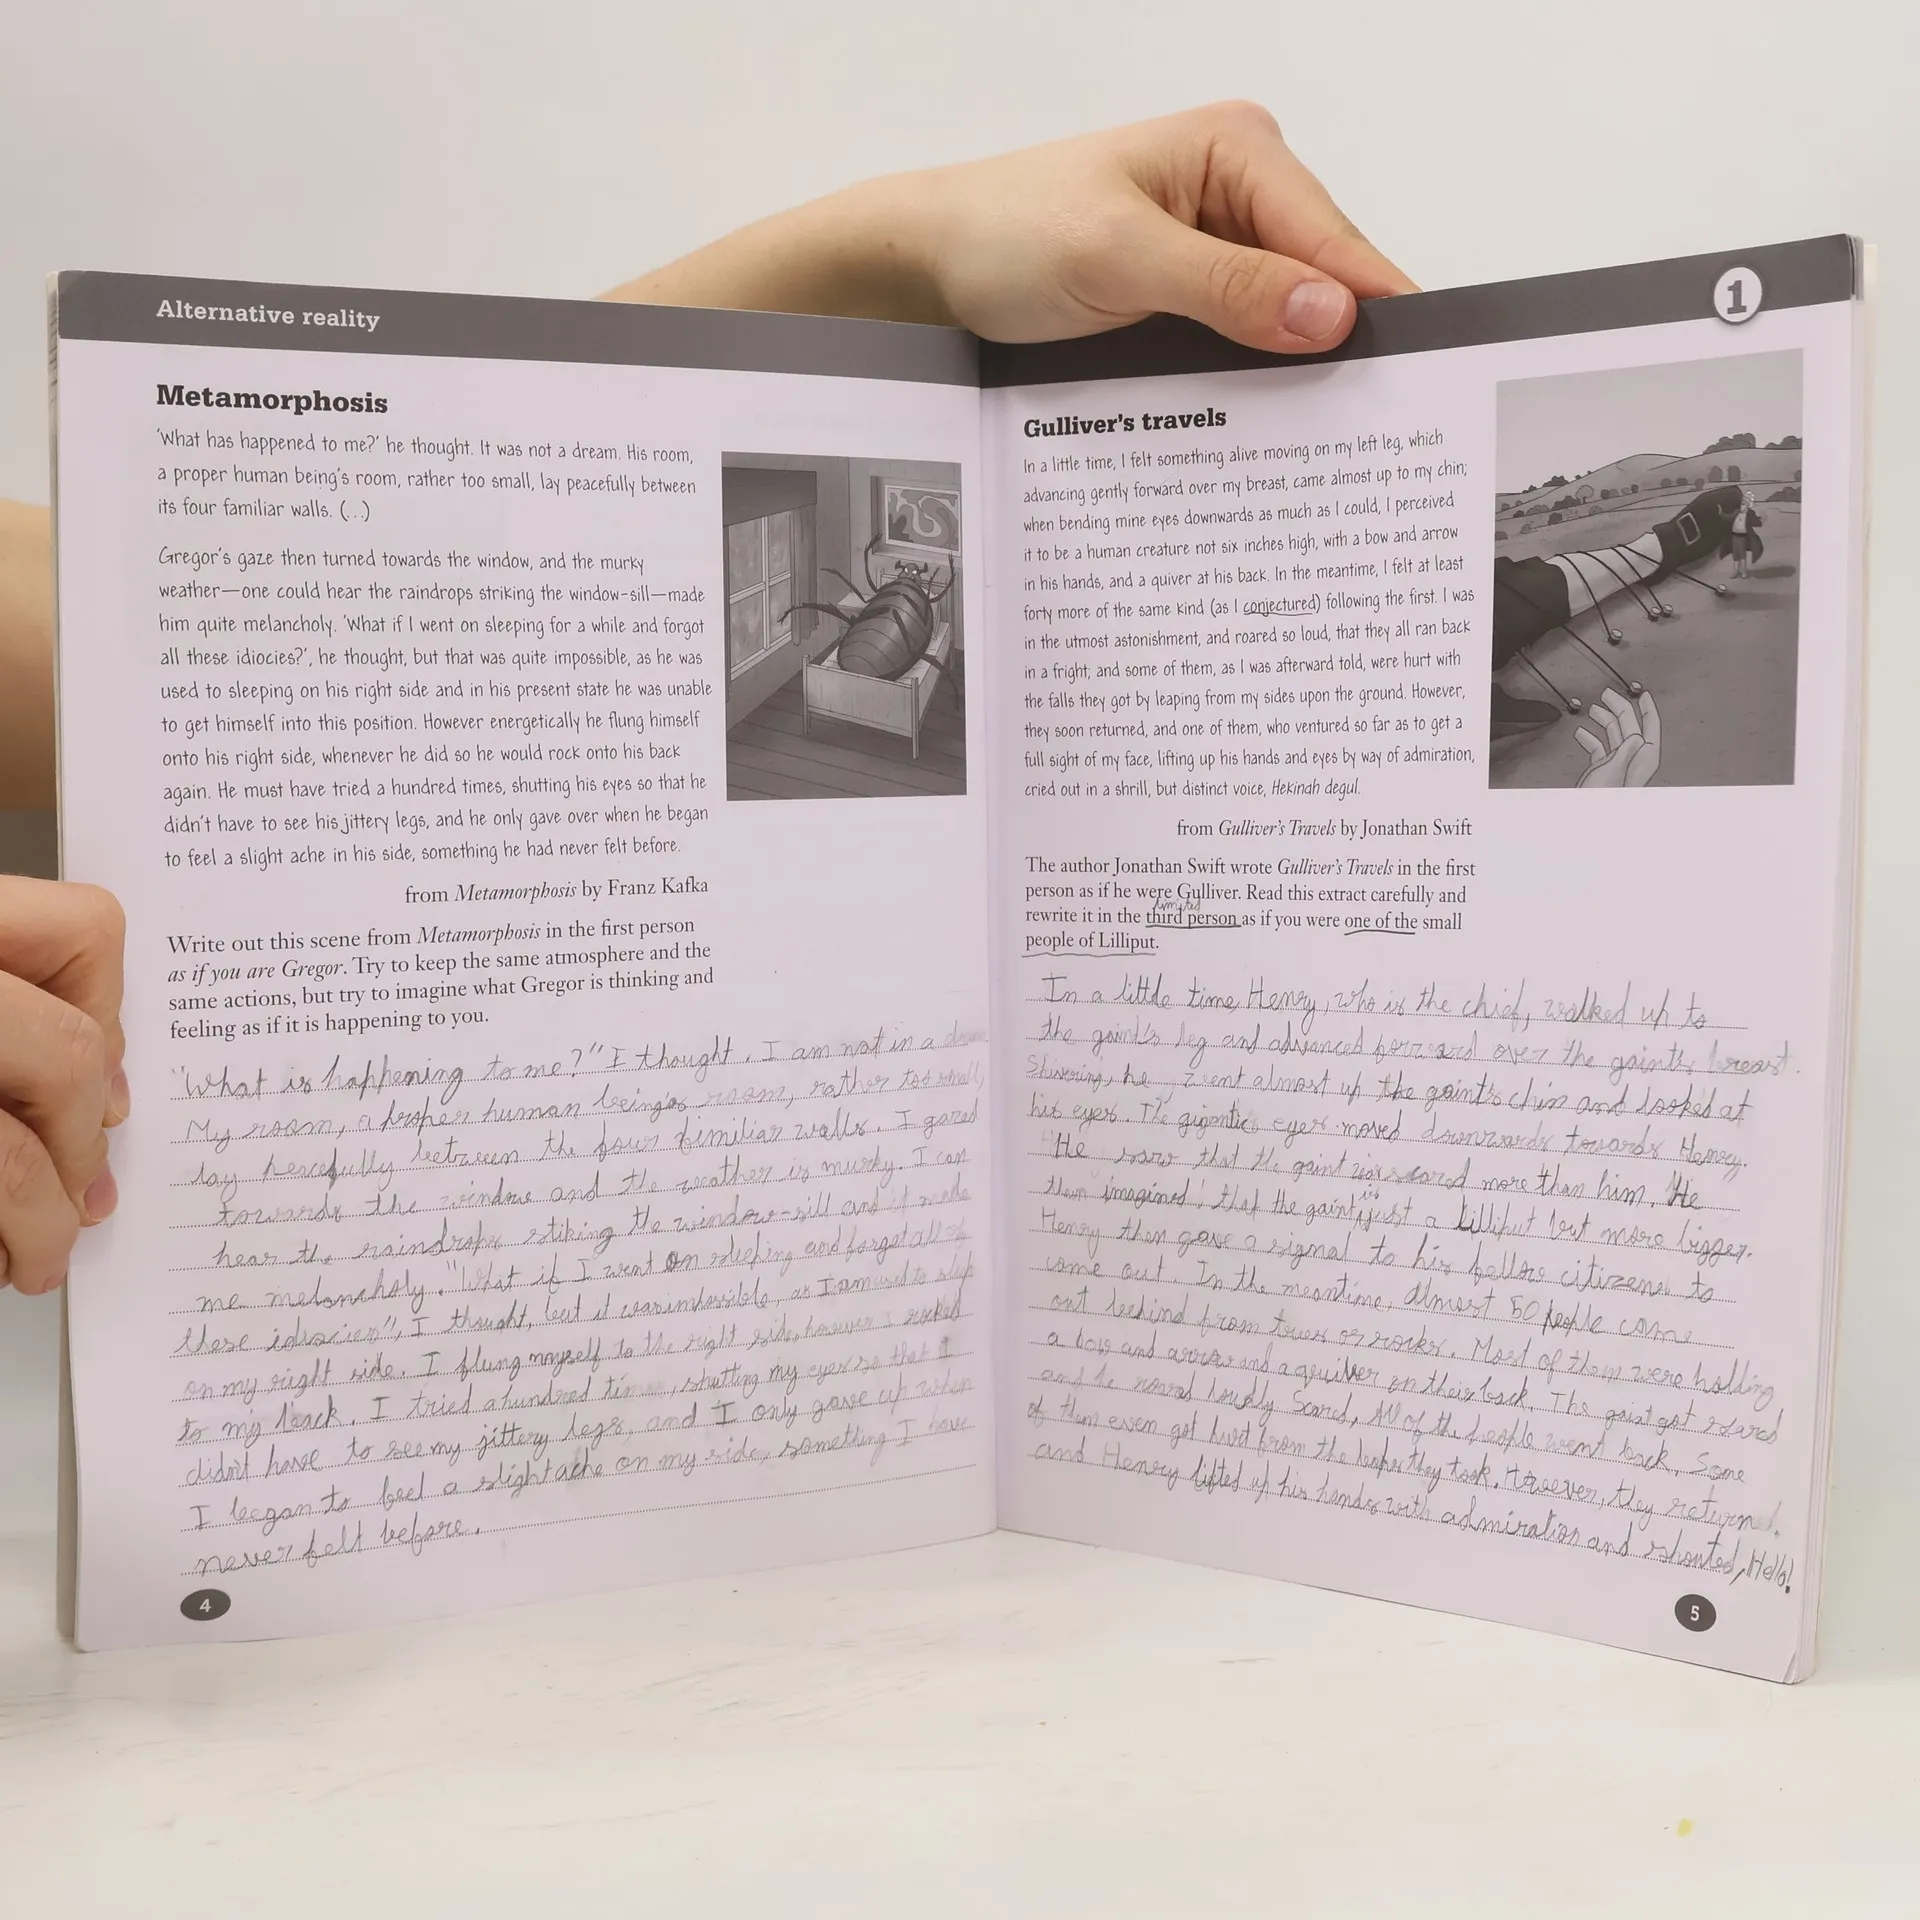 Alternative reality
Metamorphosis
'What has happened to me?' he thought. It was not a dream. His room,
a proper human being's room, rather too small, lay peacefully between
its four familiar walls. (...)
Gregor's gaze then turned towards the window, and the murky
weather—one could hear the raindrops striking the window-sill—made
him quite melancholy. 'What if I went on sleeping for a while and forgot
all these idiocies?', he thought, but that was quite impossible, as he was
used to sleeping on his right side and in his present state he was unable
to get himself into this position. However energetically he flung himself
onto his right side, whenever he did so he would rock onto his back
again. He must have tried a hundred times, shutting his eyes so that he
didn't have to see his jittery legs, and he only gave over when he began
to feel a slight ache in his side, something he had never felt before.
from Metamorphosis by Franz Kafka
Write out this scene from Metamorphosis in the first person
as if you are Gregor. Try to keep the same atmosphere and the
same actions, but try to imagine what Gregor is thinking and
feeling as if it is happening to you.
"What is happening to me?" I thought. I am not in a
My room, a proper human being's room, rather too small,
lay peacefully between the four fimiliar walls. I gazed
towards the window and the weather is murky. I can
hear the raindrops stiking the window-sill and it made
me meloncholy. "What if I went on sleeping and forgot all of
these idiocies", I thought, but it was impossible, as I am used to sleep
on my right side. I flung myself to the right side, however I rocked
to my back. I tried a hundred times, shutting my eyes so that I
didn't have to see my jittery legs, and I only gave up when
I began to feel a slight ache on my side, something I have
never felt before.
4
1
Gulliver's travels
In a little time, I felt something alive moving on my left leg, which
advancing gently forward over my breast, came almost up to my chin;
when bending mine eyes downwards as much as I could, I perceived
it to be a human creature not six inches high, with a bow and arrow
in his hands, and a quiver at his back. In the meantime, I felt at least
forty more of the same kind (as I conjectured) following the first. I was
in the utmost astonishment, and roared so loud, that they all ran back
in a fright; and some of them, as I was afterward told, were hurt with
the falls they got by leaping from my sides upon the ground. However,
they soon returned, and one of them, who ventured so far as to get a
full sight of my face, lifting up his hands and eyes by way of admiration,
cried out in a shrill, but distinct voice, Hekinah degul.
from Gulliver's Travels by Jonathan Swift
The author Jonathan Swift wrote Gulliver's Travels in the first
person as if he were Gulliver. Read this extract carefully and
limited
rewrite it in the third person as if you were one of the small
people of Lilliput.
In a little time, Henry, who is the chief, walked up to
the gaint's leg and advanced forward over the gaint's breast.
Shivering, he went almost up the gaint's chin and looked at
his eyes. The gigantic eyes moved downwards towards Henry.
He saw that the gaint was scared more than him. He
then imagined that the gaint is just a Lilliput but more bigger.
Henry then gave a signal to his fellow citizens to
come out. In the meantime, almost 50 people came
out behind from trees or rocks. Most of them were holding
a bow and arrow and a quiver on their back. The gaint got scared
and he roared loudly. Scared, All of the people went back. Some
of them even got hurt from the leaps they took. However, they returned.
and Henry lifted up his hands with admiration and shouted, Hello!
5